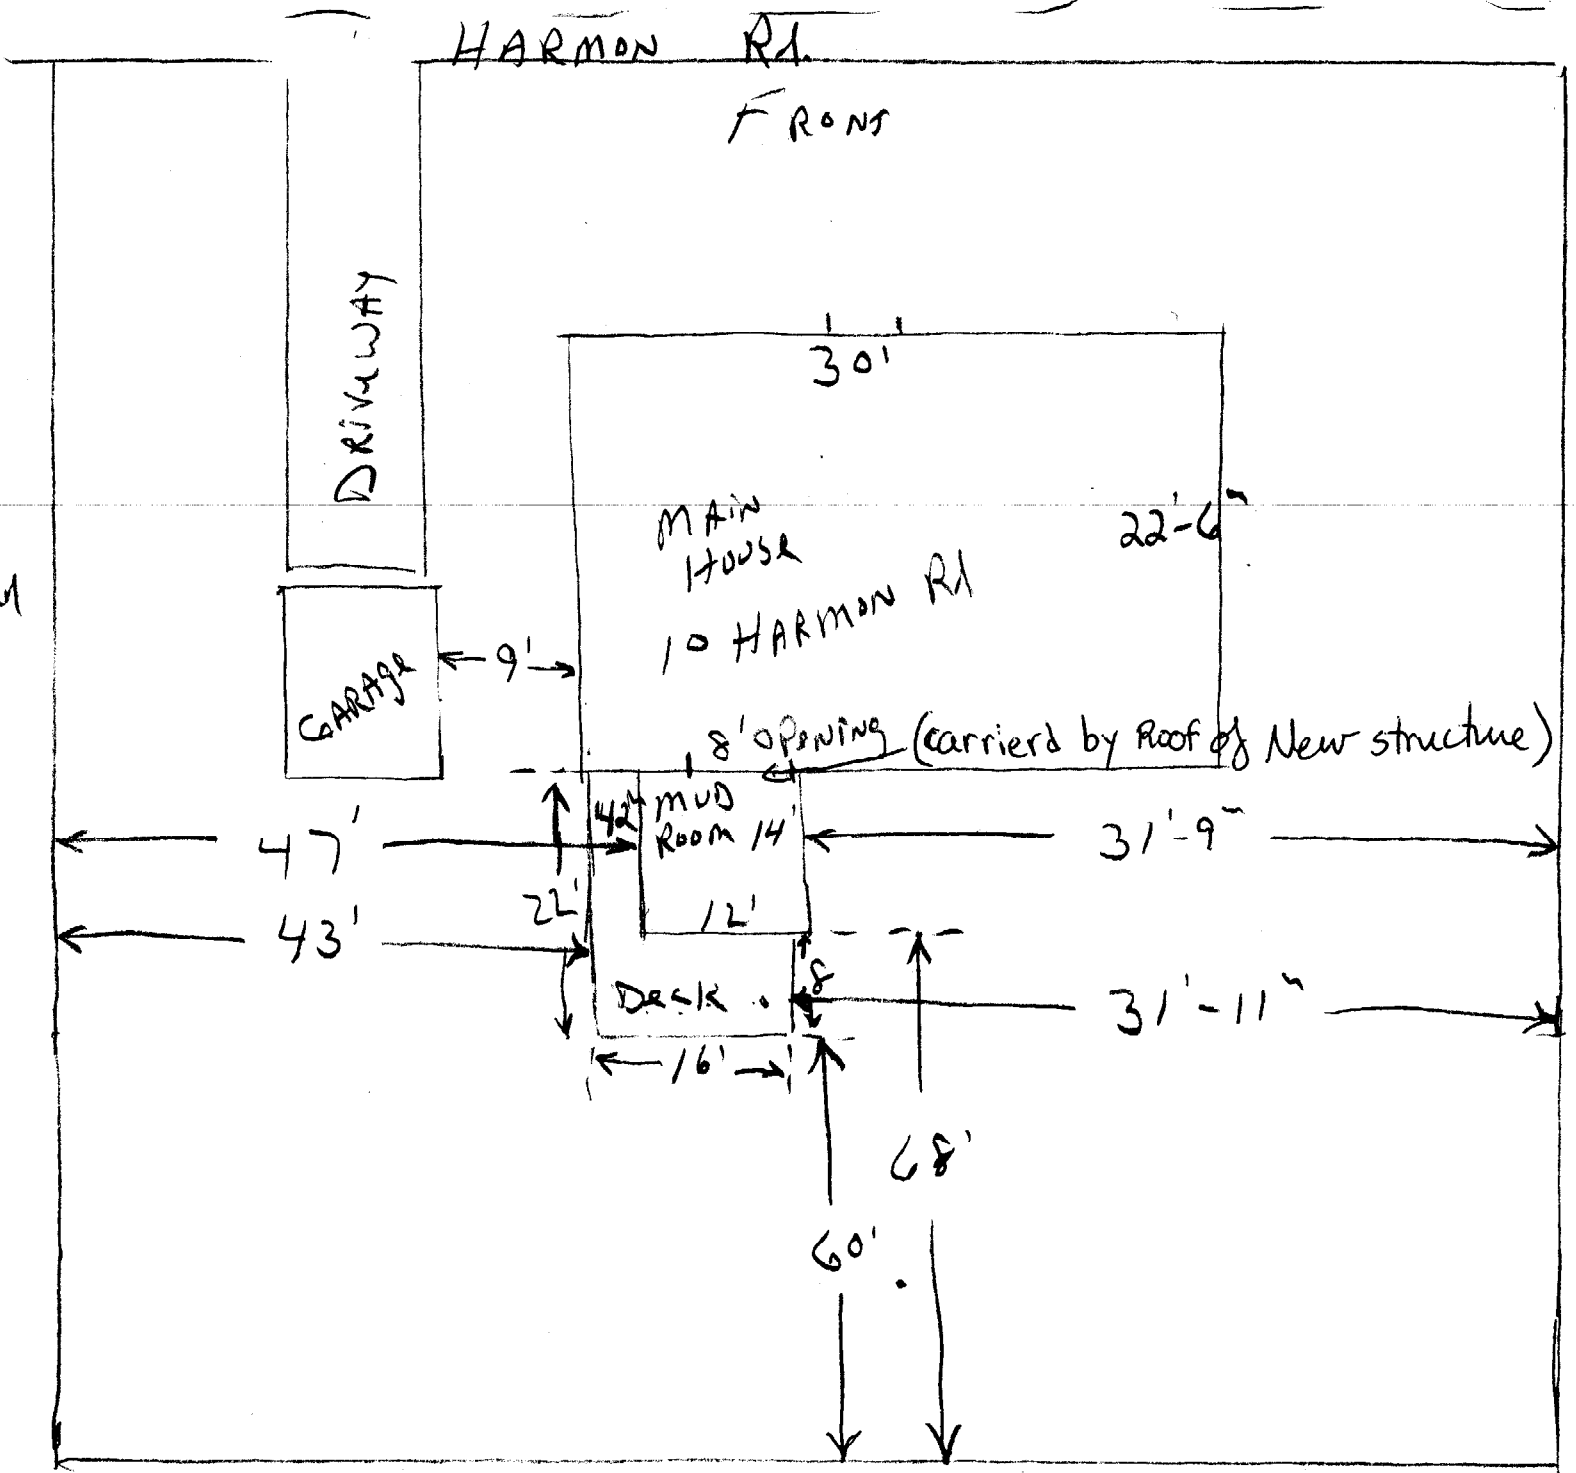 HARMON Rd.
FRONT
DRIVEWAY
30'
MAIN
HOUSE
22'-6"
10 HARMON Rd
GARAGE
9'
8' OPENING (carrierd by Roof of New structure)
42" MUD
ROOM 14'
47'
31'-9"
22'
12'
43'
8'
Deck
31'-11"
16'
68'
60'